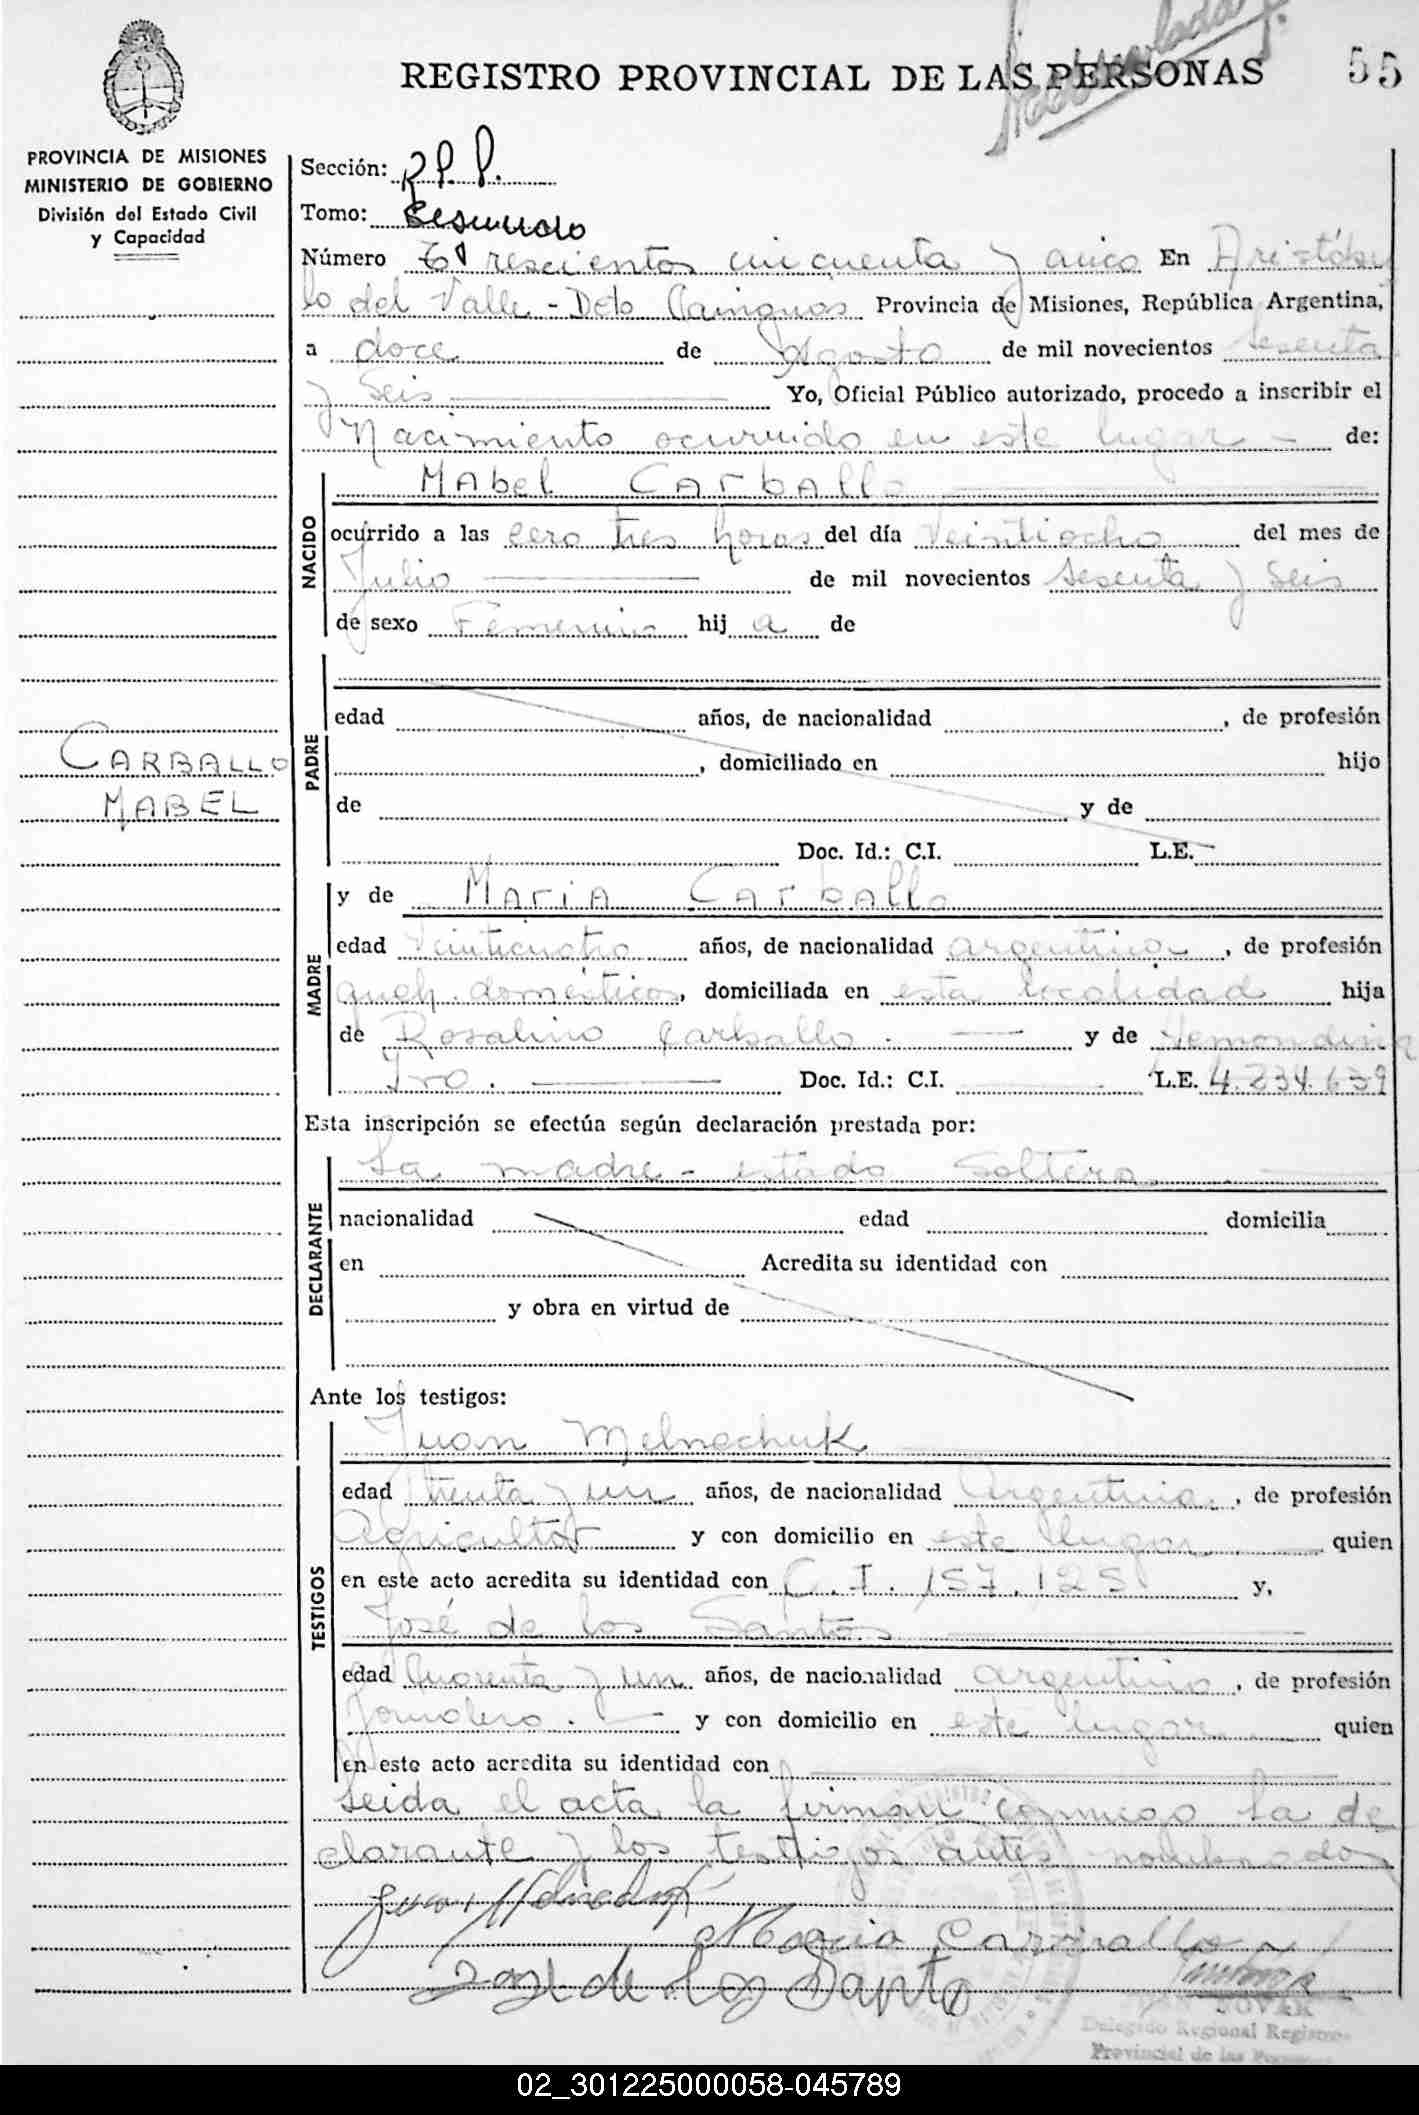 REGISTRO PROVINCIAL DE LAS PERSONAS
55
PROVINCIA DE MISIONES
MINISTERIO DE GOBIERNO
División del Estado Civil
y Capacidad
Sección: R.P.P.
Tomo: Segundo
Número Trescientos cincuenta y cinco En Aristóbu
lo del Valle - Dpto Cainguás Provincia de Misiones, República Argentina,
a doce de Agosto de mil novecientos sesenta
y Seis Yo, Oficial Público autorizado, procedo a inscribir el
Nacimiento ocurrido en este lugar - de:
NACIDO
Mabel Carballo
ocurrido a las cero tres horas del día Veintiocho del mes de
Julio de mil novecientos sesenta y Seis
de sexo Femenino hij a de
PADRE
edad años, de nacionalidad , de profesión
, domiciliado en hijo
de y de
Doc. Id.: C.I. L.E.
CARBALLO
MABEL
MADRE
y de Maria Carballo
edad Veinticuatro años, de nacionalidad argentina, de profesión
queh. domésticos, domiciliada en esta localidad hija
de Rosalino Carballo. y de
Doc. Id.: C.I. L.E. 4.234.639
Esta inscripción se efectúa según declaración prestada por:
DECLARANTE
La madre - estado Soltera
nacionalidad edad domicilia
en Acredita su identidad con
y obra en virtud de
Ante los testigos:
TESTIGOS
Juan Melnechuk
edad treinta y un años, de nacionalidad Argentina, de profesión
Agricultor y con domicilio en este lugar quien
en este acto acredita su identidad con C.I. 157.125 y,
José de los Santos
edad Cuarenta y un años, de nacionalidad argentino, de profesión
Jornalero. y con domicilio en este lugar quien
en este acto acredita su identidad con
Leida el acta la firman conmigo la de
clarante y los testigos antes nombrados
Maria Carballo
Jose de los Santo
NOVAK
Delegado Regional Registro
Provincial de las Personas
02_301225000058-045789